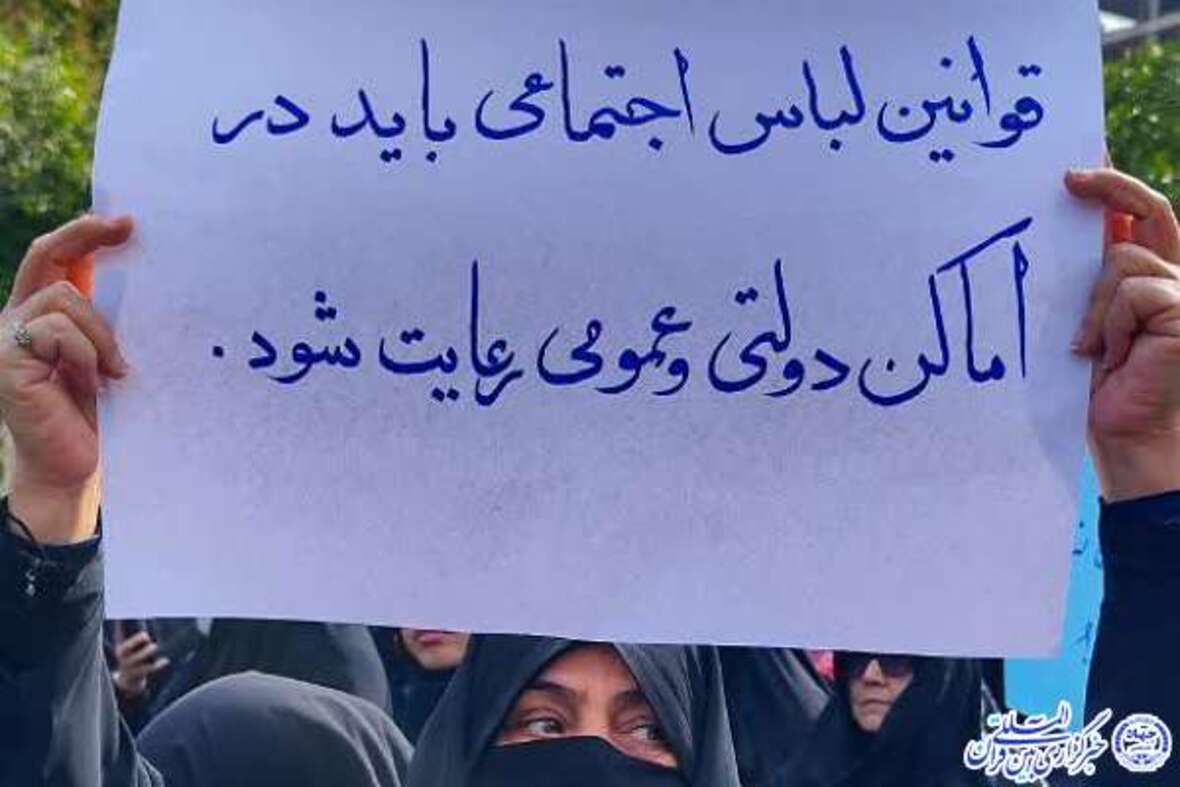 قوانین لباس اجتماعی باید در
اماکن دولتی وعمومی رعایت شود.
خبرگزاری بین المللی قرآن